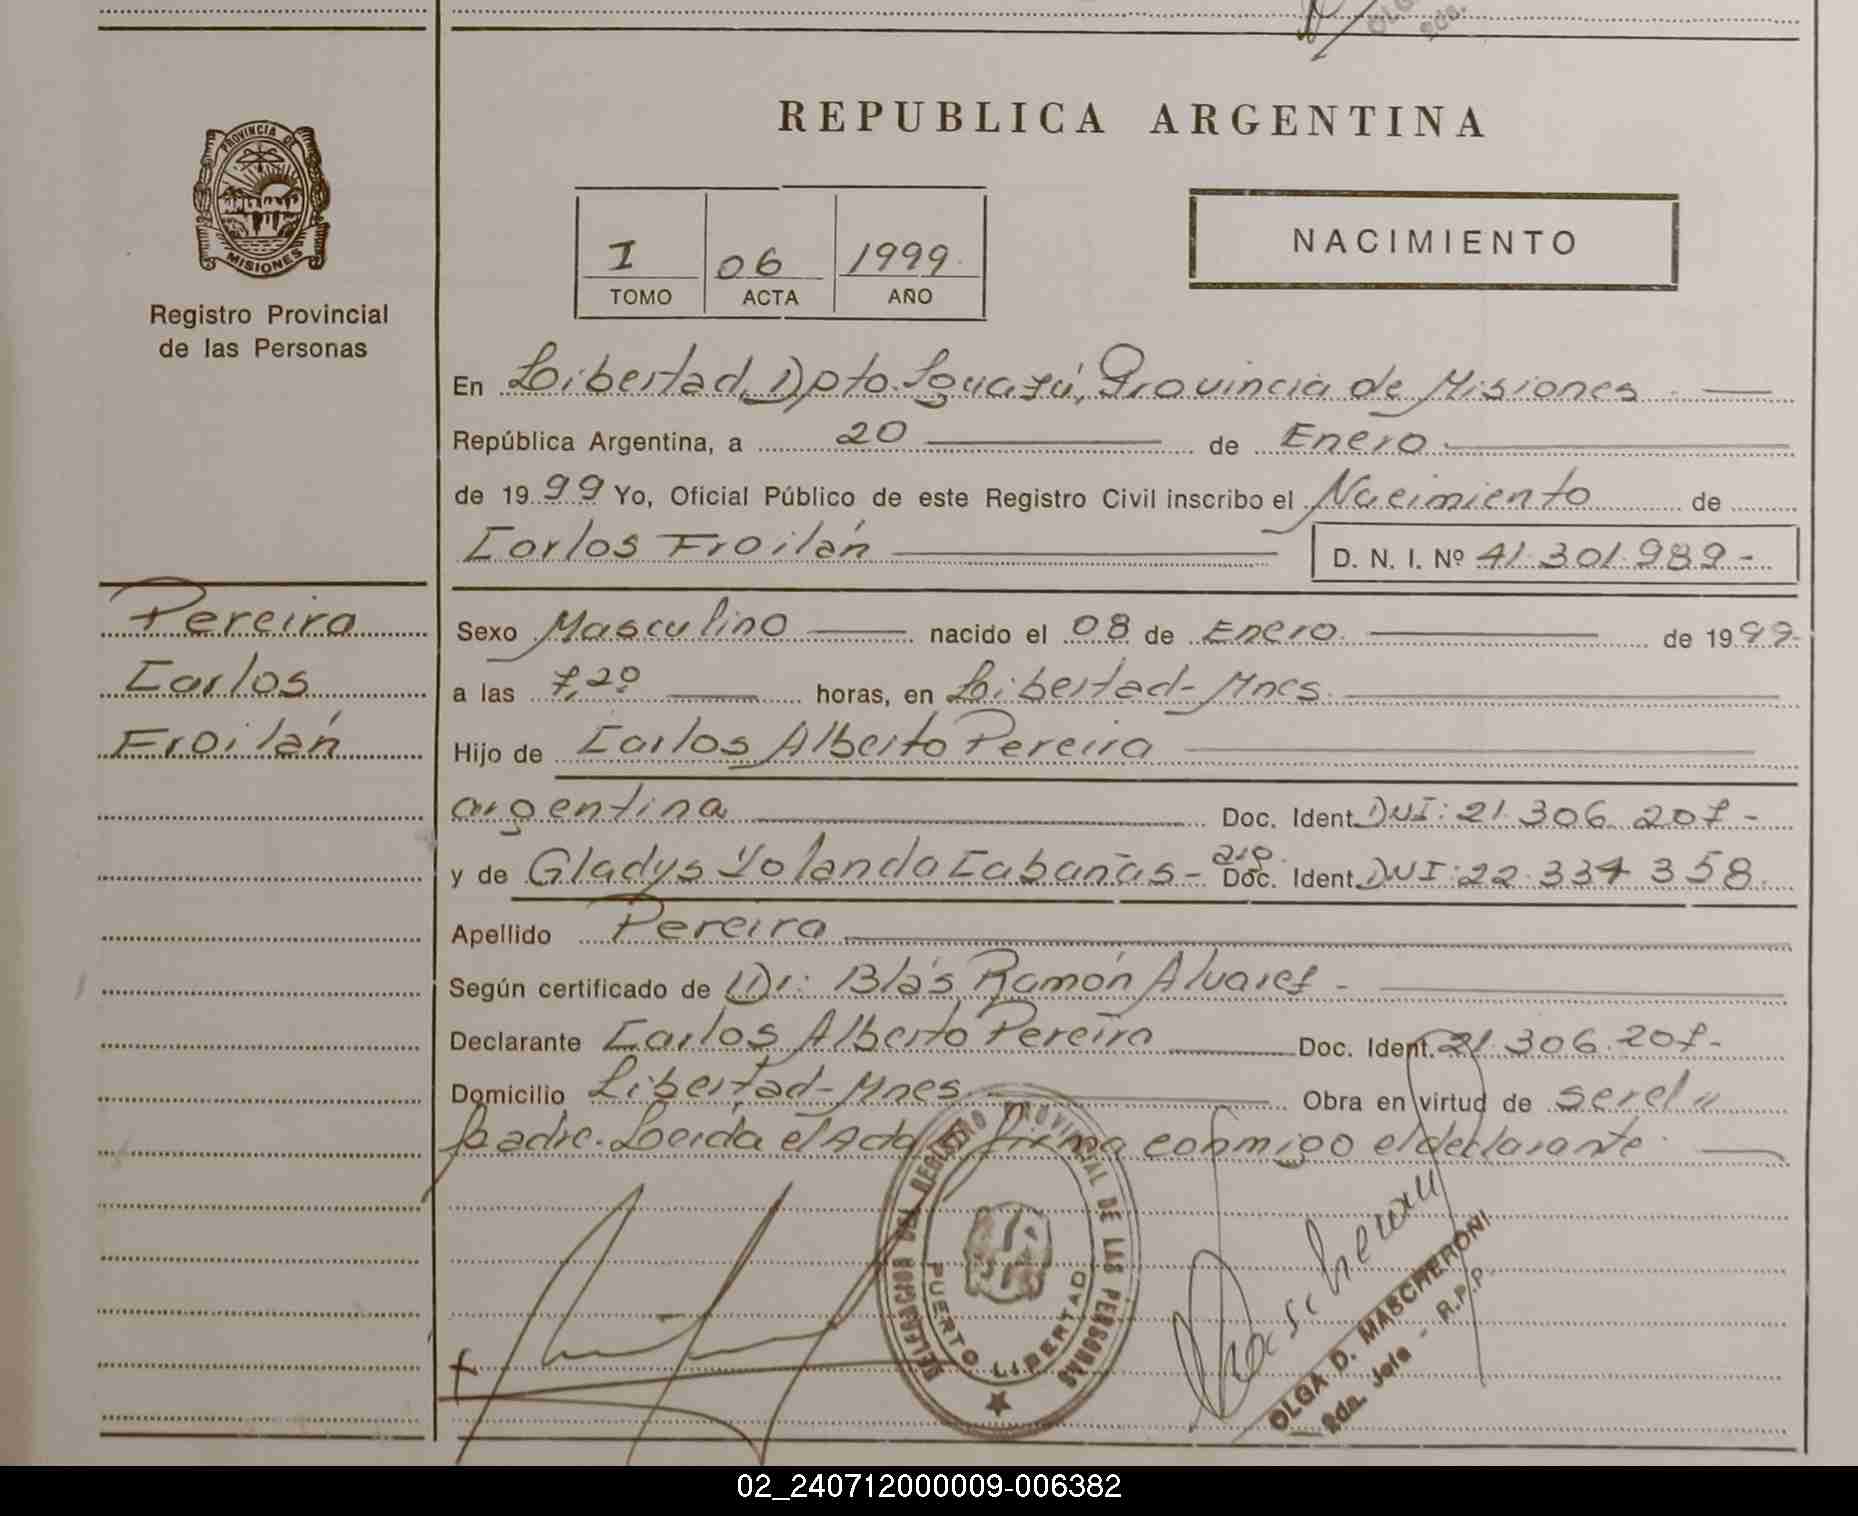 REPUBLICA ARGENTINA
PROVINCIA DE
MISIONES
Registro Provincial
de las Personas
I 06 1999
TOMO ACTA AÑO
NACIMIENTO
En Libertad, Dpto. Iguazú, Provincia de Misiones
República Argentina, a 20 de Enero
de 1999 Yo, Oficial Público de este Registro Civil inscribo el Nacimiento de
Carlos Froilán D. N. I. Nº 41.301.989-
Pereira
Carlos
Froilán
Sexo Masculino nacido el 08 de Enero de 1999-
a las 7,20 horas, en Libertad-Mnes.
Hijo de Carlos Alberto Pereira
argentina Doc. Ident. DNI: 21.306.207-
y de Gladys Yolanda Cabañas- arg. Doc. Ident. DNI: 22.334.358.
Apellido Pereira
Según certificado de Dr: Blás Ramón Alvarez-
Declarante Carlos Alberto Pereira Doc. Ident. 21.306.207-
Domicilio Libertad-Mnes. Obra en virtud de ser el "
padre. Leida el Acta firma conmigo el declarante.
DELEGACION DEL REGISTRO PROVINCIAL DE LAS PERSONAS
PUERTO LIBERTAD
OLGA D. MASCHERONI
2da. Jefa - R.P.P.
02_240712000009-006382